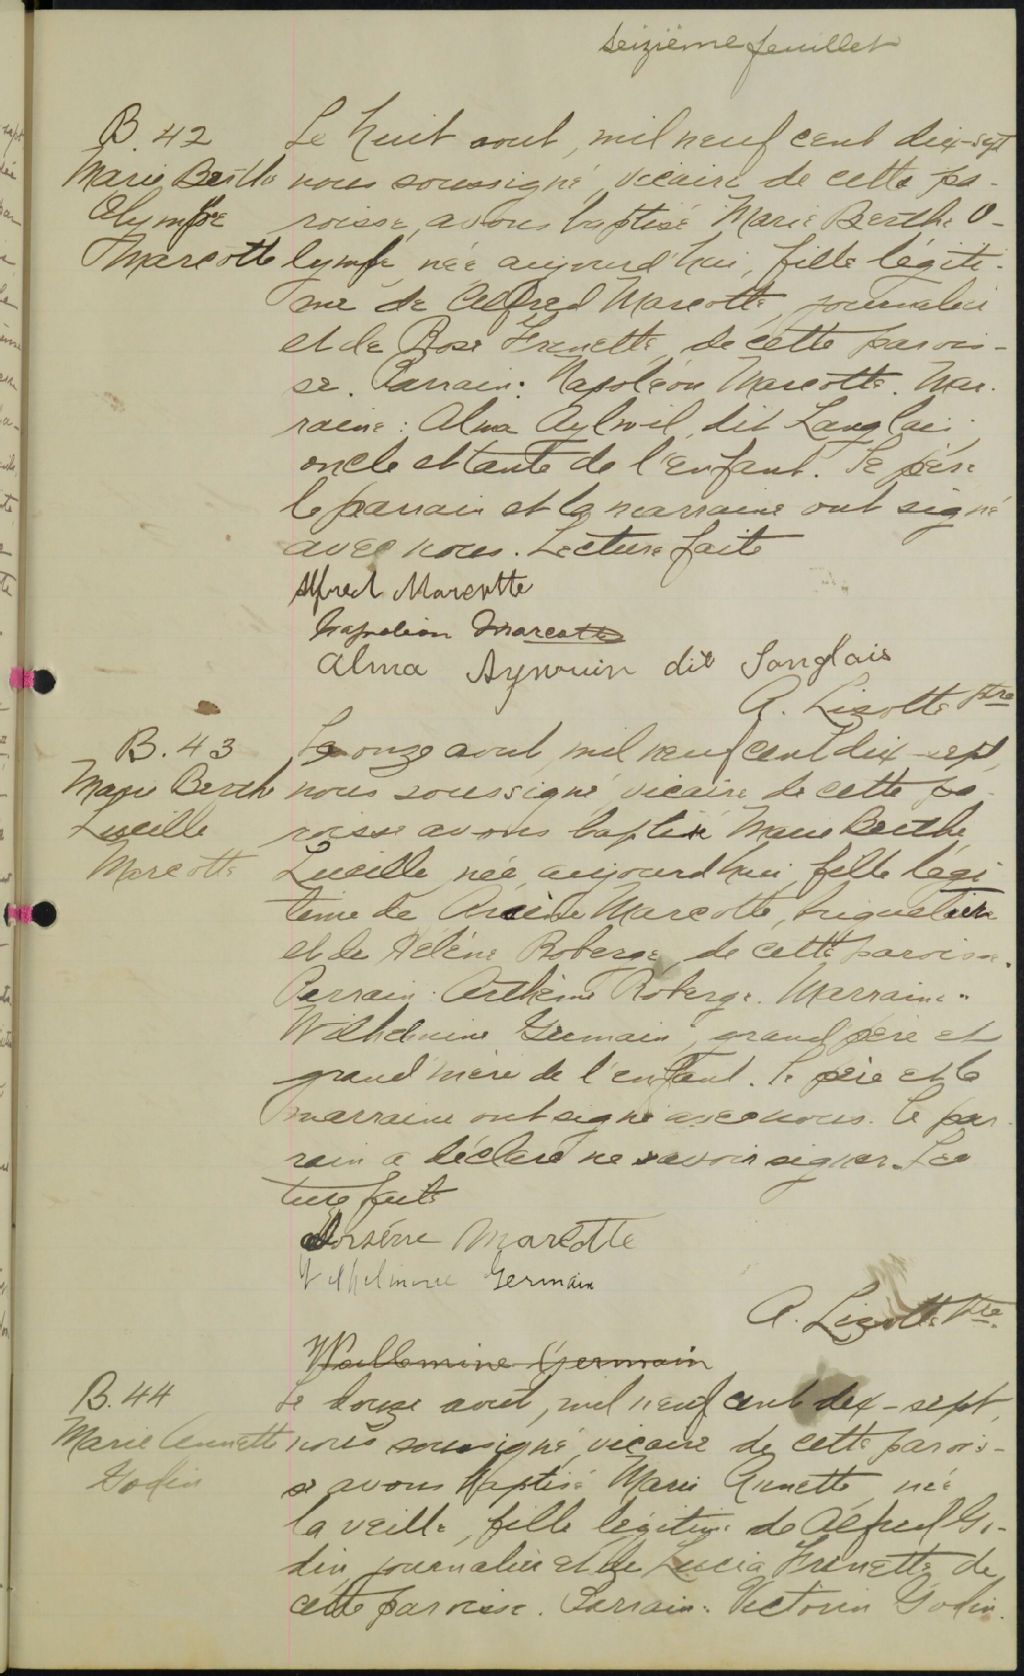 Seizième feuillet
B. 42
Marie Berthe
Olympe
Marcotte
Le huit aout, mil neuf cent dix-sept
nous soussigné, vicaire de cette pa-
roisse, avons baptisé Marie Berthe O-
lympe, née aujourd'hui, fille légiti-
me de Alfred Marcotte, journalier
et de Rose Frenette, de cette parois-
se. Parrain: Napoléon Marcotte. Mar-
raine: Alma Aylwil dit Langlais
oncle et tante de l'enfant. Le père
le parrain et la marraine ont signé
avec nous. Lecture faite
Alfred Marcotte
Napoleon Marcotte
Alma Aywuin dit Langlais
A. Lizotte Ptre
B. 43
Marie Berthe
Lucille
Marcotte
Le onze aout, mil neuf cent dix-sept,
nous soussigné, vicaire de cette pa-
roisse avons baptisé Marie Berthe
Lucille, née aujourd'hui, fille légi
time de Marcotte, briquetier
et de Hélène Roberge, de cette paroisse.
Parrain: Arthème Roberge. Marraine:
Wilhelmine Germain, grand père et
grand'mère de l'enfant. Le père et la
marraine ont signé avec nous. Le par-
rain a déclaré ne savoir signer. Lec
ture faite
Marcotte
Vilhelmine Germain
A. Lizotte Ptre.
Wallemine Germain
B. 44
Marie Annette
Godin
Le douze aout, mil neuf cent dix-sept,
nous soussigné, vicaire de cette parois-
se avons baptisé Marie Annette, née
la veille, fille légitime de Alfred Go-
din journalier et de Lucia Frenette de
cette paroisse. Parrain: Victorin Godin.